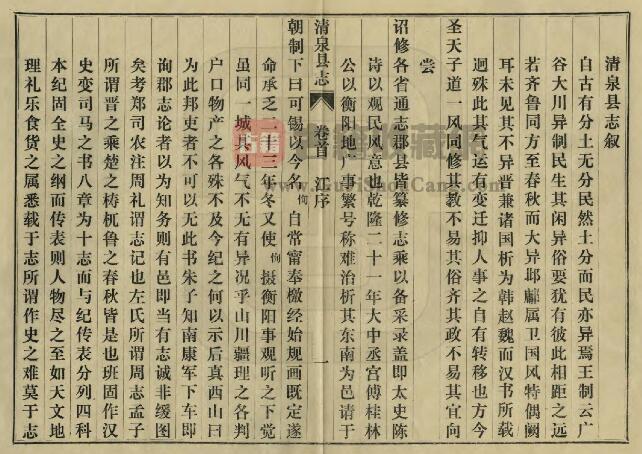 清泉县志叙
自古有分土无分民然土分而民亦异焉王制云广
谷大川异制民生其间异俗要犹有彼此相距之远
若齐鲁同方至春秋而大异邶鄘属卫国风特偶阙
耳未见其不异晋兼诸国析为韩赵魏而汉书所载
迥殊此其气运有变迁抑人事之自有转移也方今
圣天子道一风同修其教不易其俗齐其政不易其宜向
尝
诏修各省通志郡县皆纂修志乘以备采录盖即太史陈
诗以观民风意也乾隆二十一年大中丞宫傅桂林
公以衡阳地广事繁号称难治析其东南为邑请于
清泉县志 卷首 江序 一
朝制下曰可锡以今名恂自常甯奉檄经始规画既定遂
命承乏二十三年冬又使恂摄衡阳事观听之下觉
虽同一城其风气不无有异况乎山川疆理之各判
户口物产之各殊不及今纪之何以示后真西山曰
为此邦吏者不可以无此书朱子知南康军下车即
询郡志论者以为知务则有邑即当有志诚非缓图
矣考郑司农注周礼谓志记也左氏所谓周志孟子
所谓晋之乘楚之梼杌鲁之春秋皆是也班固作汉
史变司马之书八章为十志而与纪传表分列四科
本纪固全史之纲而传表则人物尽之至如天文地
理礼乐食货之属悉载于志所谓作史之难莫于志